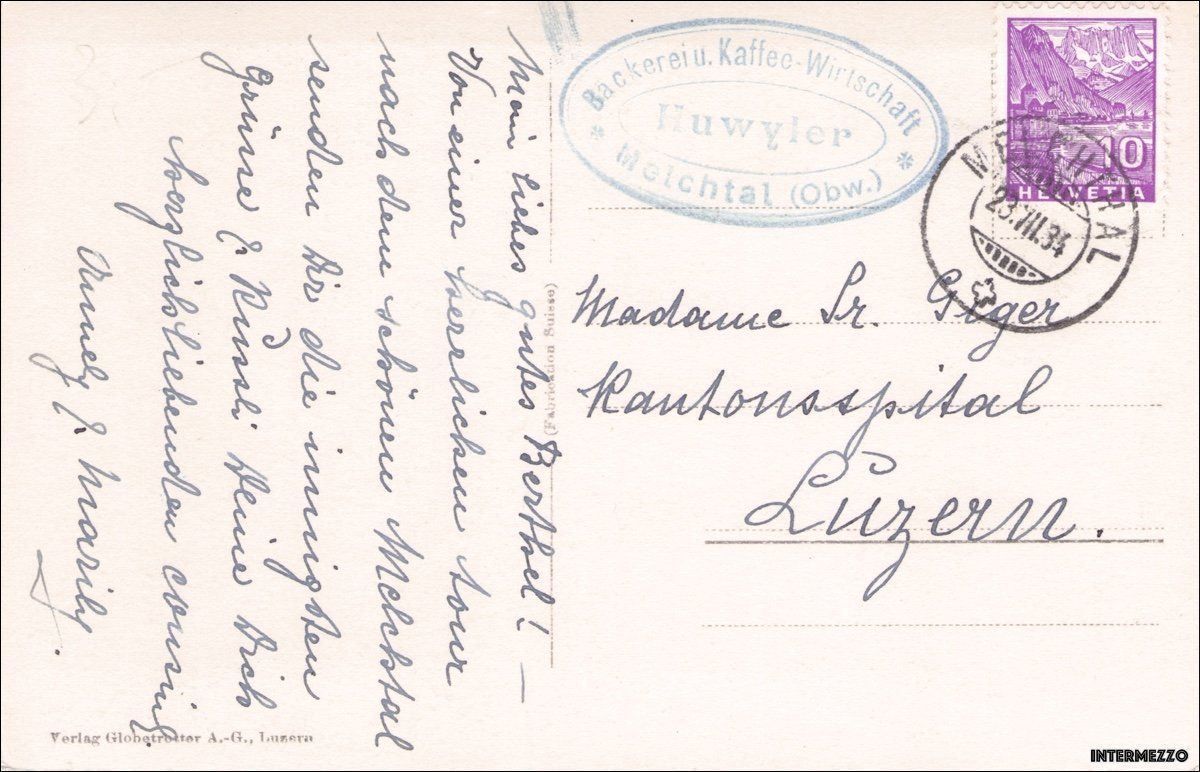 Mein liebes gutes Berthel! —
Von einer herrlichen tour
nach dem schönen Melchtal
senden Dir die innigsten
Grüsse & Küssli Deine Dich
herzlichliebenden cousinen
Annely & Marily.
Bäckerei u. Kaffee-Wirtschaft
Huwyler
* Melchtal (Obw.) *
10
HELVETIA
MELCHTAL
23.VII.34
Madame Sr. Geger
Kantonsspital
Luzern.
(Fabrication Suisse)
Verlag Globetrotter A.-G., Luzern
INTERMEZZO